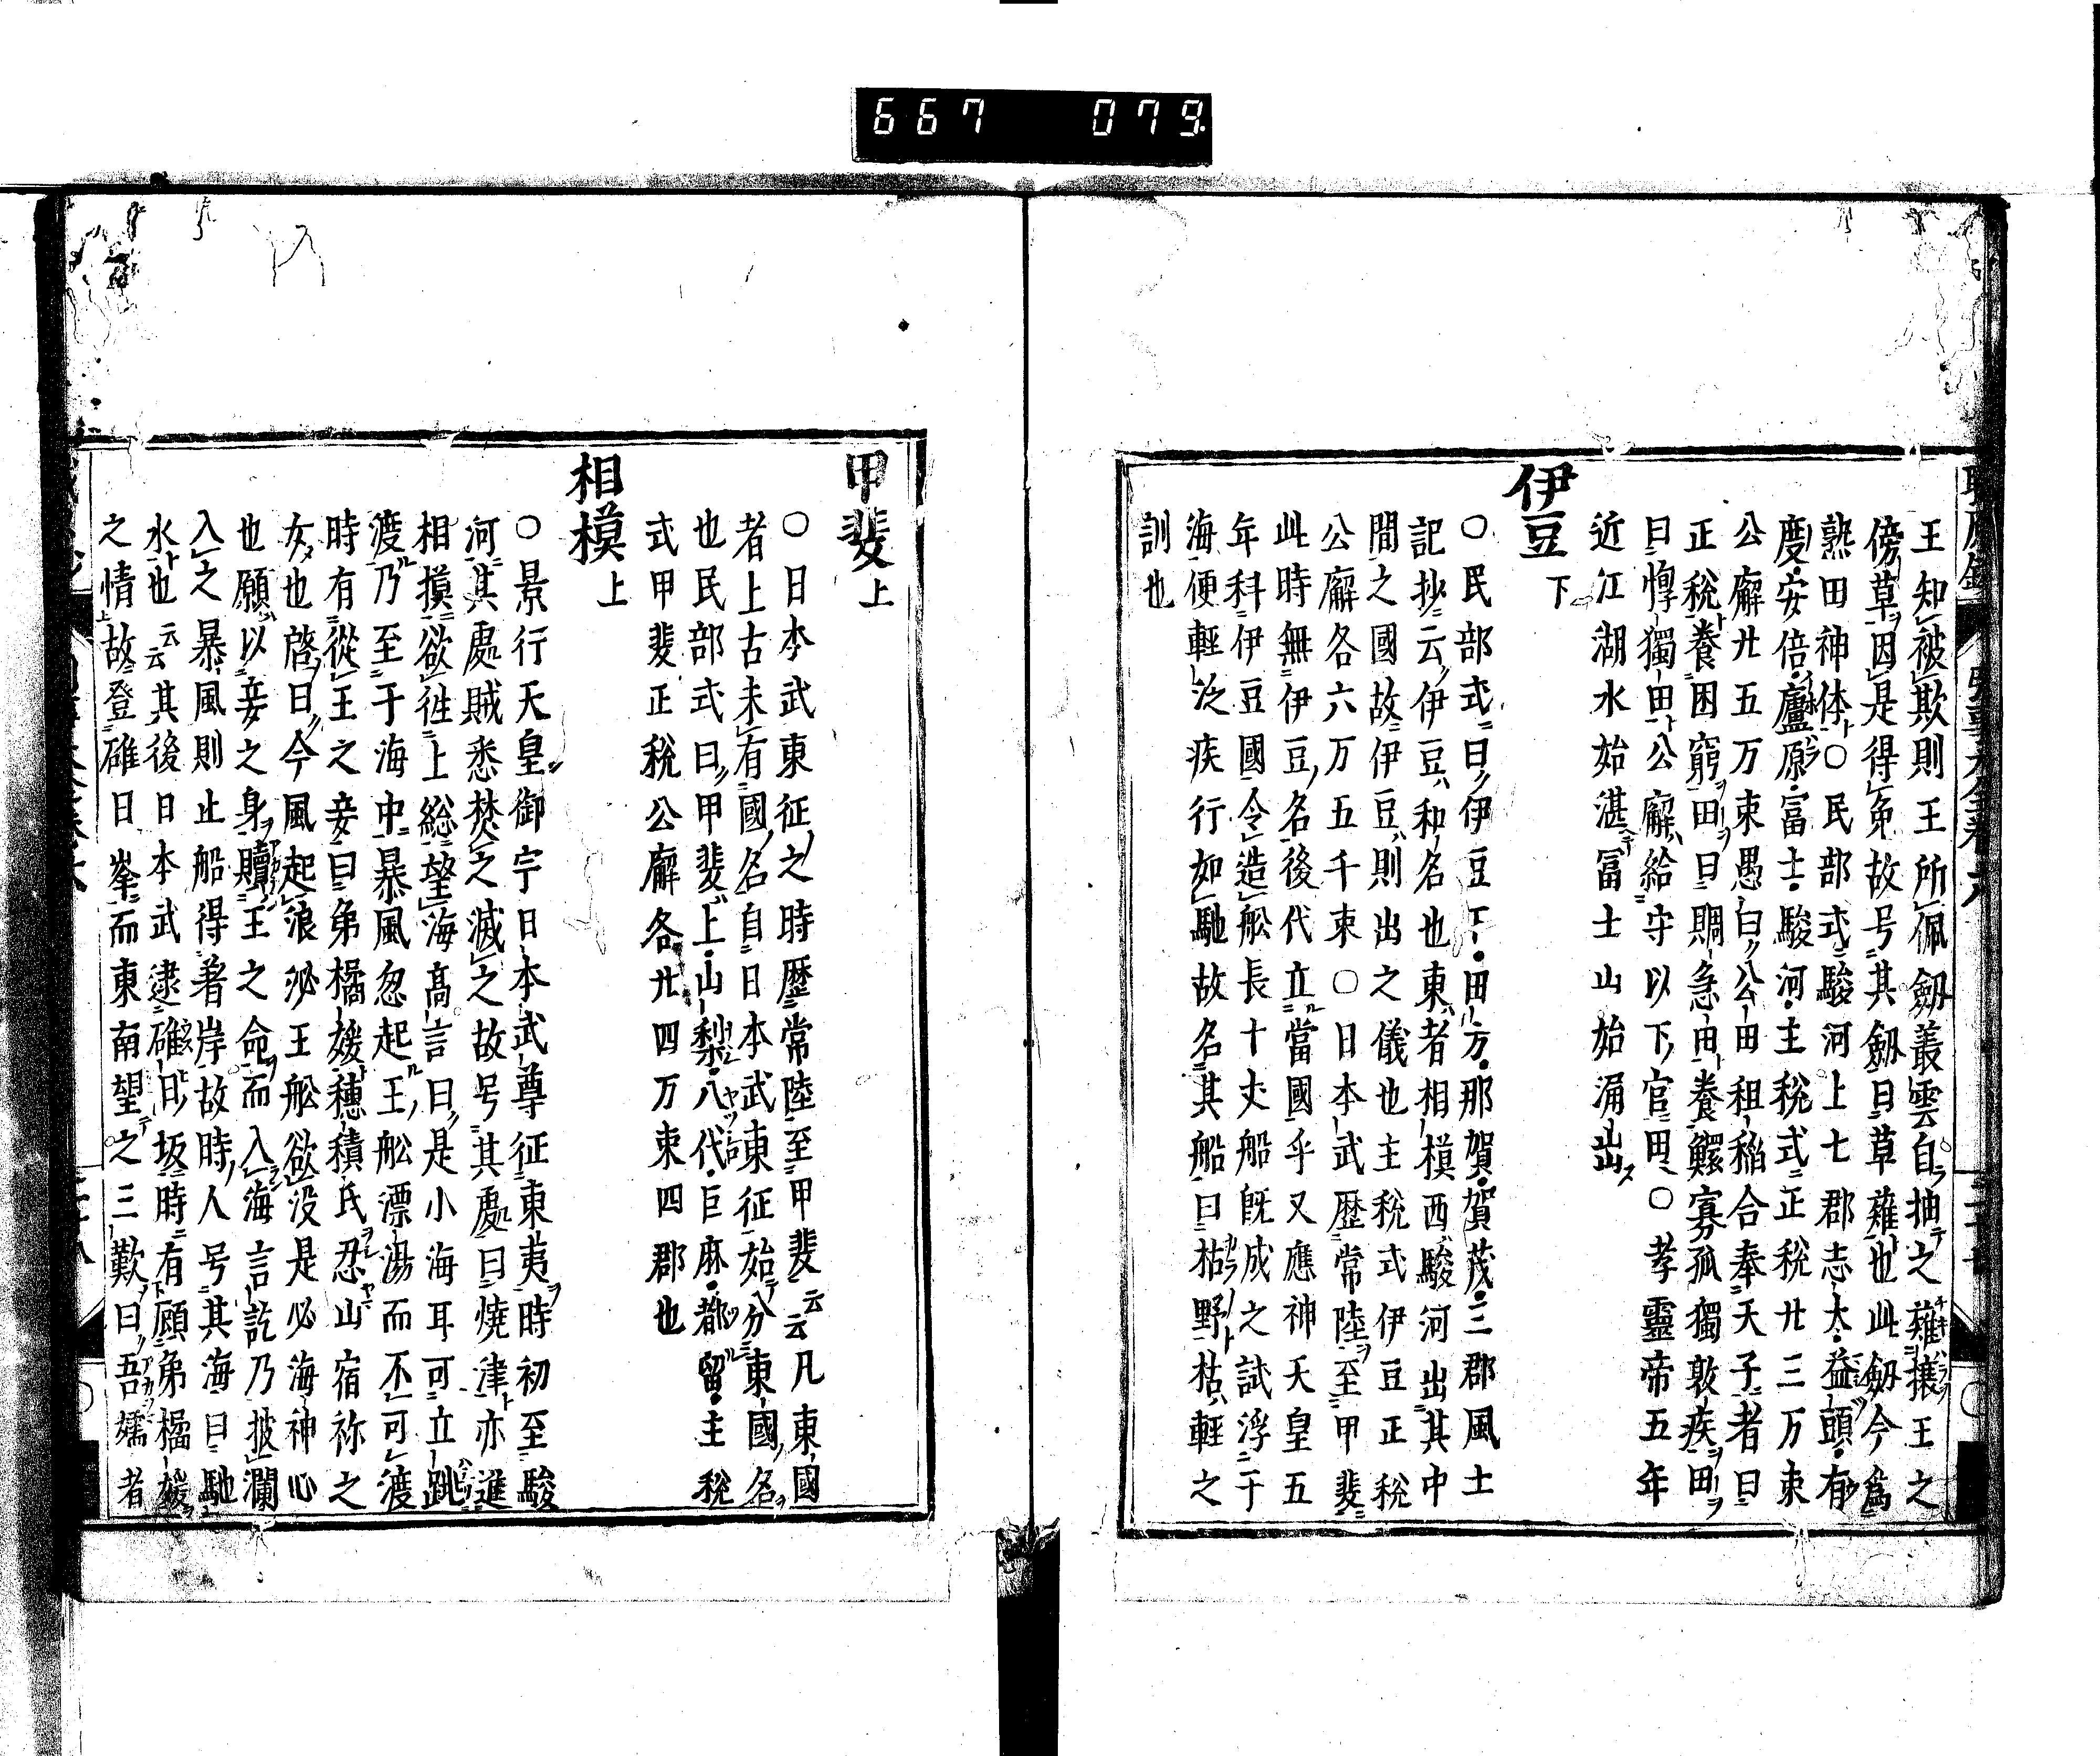 667 079
王知被欺則王所佩劔叢雲自抽之薙攘王之
傍草因是得免故号其劔曰草薙也此劔今為
熱田神体○民部式駿河上七郡志太益頭有
度安倍廬原冨士駿河主税式正税廾三万束
公廨廾五万束愚白公田租稲合奉天子者曰
正税養困窮田曰賙急田養鰥寡孤獨敦疾田
曰惸獨田公廨給守以下官田○孝靈帝五年
近江湖水始湛冨士山始涌出
伊豆下
○民部式曰伊豆下田方那賀賀茂三郡風土
記抄云伊豆和名也東者相模西駿河出其中
間之國故伊豆則出之儀也主税式伊豆正税
公廨各六万五千束○日本武歴常陸至甲斐
此時無伊豆名後代立當國乎又應神天皇五
年科伊豆國令造舩長十丈船既成之試浮于
海便輕泛疾行如馳故名其船曰枯野枯軽之
訓也
甲斐上
○日本武東征之時歴常陸至甲斐云云凡東國
者上古未有國名自日本武東征始分東國名
也民部式曰甲斐上山梨八代巨麻都留主税
式甲斐正税公廨各廾四万束四郡也
相模上
○景行天皇御宇日本武尊征東夷時初至駿
河其處賊悉焚之滅之故号其處曰燒津亦進
相摸欲徃上総望海髙言曰是小海耳可立跳
渡乃至于海中暴風忽起王舩漂蕩而不可渡
時有從王之妾曰弟橘媛穗積氏忍山宿祢之
女也啓曰今風起浪泌王舩欲没是必海神心
也願以妾之身贖王之命而入海言訖乃披瀾
入之暴風則止船得著岸故時人号其海曰馳
水也云云其後日本武逮碓日坂時有顧弟橘媛
之情故登碓日峯而東南望之三歎曰吾嬬者